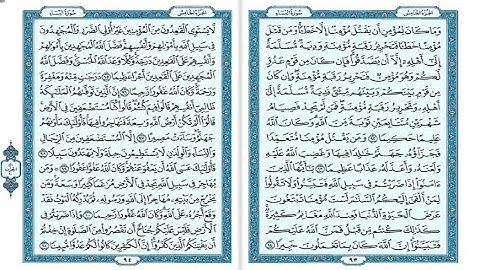 الجزء الخامس
سورة النساء
وَمَا كَانَ لِمُؤْمِنٍ أَن يَقْتُلَ مُؤْمِنًا إِلَّا خَطَـًٔا وَمَن قَتَلَ
مُؤْمِنًا خَطَـًٔا فَتَحْرِيرُ رَقَبَةٍ مُّؤْمِنَةٍ وَدِيَةٌ مُّسَلَّمَةٌ
إِلَىٰٓ أَهْلِهِۦٓ إِلَّآ أَن يَصَّدَّقُوا۟ فَإِن كَانَ مِن قَوْمٍ عَدُوٍّ
لَّكُمْ وَهُوَ مُؤْمِنٌ فَتَحْرِيرُ رَقَبَةٍ مُّؤْمِنَةٍ وَإِن كَانَ
مِن قَوْمٍۭ بَيْنَكُمْ وَبَيْنَهُم مِّيثَـٰقٌ فَدِيَةٌ مُّسَلَّمَةٌ إِلَىٰٓ
أَهْلِهِۦ وَتَحْرِيرُ رَقَبَةٍ مُّؤْمِنَةٍ فَمَن لَّمْ يَجِدْ فَصِيَامُ
شَهْرَيْنِ مُتَتَابِعَيْنِ تَوْبَةً مِّنَ ٱللَّهِ وَكَانَ ٱللَّهُ
عَلِيمًا حَكِيمًا ٩٢ وَمَن يَقْتُلْ مُؤْمِنًا مُّتَعَمِّدًا
فَجَزَآؤُهُۥ جَهَنَّمُ خَـٰلِدًا فِيهَا وَغَضِبَ ٱللَّهُ عَلَيْهِ
وَلَعَنَهُۥ وَأَعَدَّ لَهُۥ عَذَابًا عَظِيمًا ٩٣ يَـٰٓأَيُّهَا ٱلَّذِينَ
ءَامَنُوٓا۟ إِذَا ضَرَبْتُمْ فِى سَبِيلِ ٱللَّهِ فَتَبَيَّنُوا۟ وَلَا تَقُولُوا۟
لِمَنْ أَلْقَىٰٓ إِلَيْكُمُ ٱلسَّلَـٰمَ لَسْتَ مُؤْمِنًا تَبْتَغُونَ
عَرَضَ ٱلْحَيَوٰةِ ٱلدُّنْيَا فَعِندَ ٱللَّهِ مَغَانِمُ كَثِيرَةٌ
كَذَٰلِكَ كُنتُم مِّن قَبْلُ فَمَنَّ ٱللَّهُ عَلَيْكُمْ
فَتَبَيَّنُوٓا۟ إِنَّ ٱللَّهَ كَانَ بِمَا تَعْمَلُونَ خَبِيرًا ٩٤
٩٣
الجزء الخامس
سورة النساء
لَّا يَسْتَوِى ٱلْقَـٰعِدُونَ مِنَ ٱلْمُؤْمِنِينَ غَيْرُ أُو۟لِى ٱلضَّرَرِ وَٱلْمُجَـٰهِدُونَ
فِى سَبِيلِ ٱللَّهِ بِأَمْوَٰلِهِمْ وَأَنفُسِهِمْ فَضَّلَ ٱللَّهُ ٱلْمُجَـٰهِدِينَ
بِأَمْوَٰلِهِمْ وَأَنفُسِهِمْ عَلَى ٱلْقَـٰعِدِينَ دَرَجَةً وَكُلًّا وَعَدَ ٱللَّهُ ٱلْحُسْنَىٰ وَفَضَّلَ ٱللَّهُ
ٱلْمُجَـٰهِدِينَ عَلَى ٱلْقَـٰعِدِينَ أَجْرًا عَظِيمًا ٩٥ دَرَجَـٰتٍ مِّنْهُ وَمَغْفِرَةً
وَرَحْمَةً وَكَانَ ٱللَّهُ غَفُورًا رَّحِيمًا ٩٦ إِنَّ ٱلَّذِينَ تَوَفَّىٰهُمُ ٱلْمَلَـٰٓئِكَةُ
ظَالِمِىٓ أَنفُسِهِمْ قَالُوا۟ فِيمَ كُنتُمْ قَالُوا۟ كُنَّا مُسْتَضْعَفِينَ فِى ٱلْأَرْضِ
قَالُوٓا۟ أَلَمْ تَكُنْ أَرْضُ ٱللَّهِ وَٰسِعَةً فَتُهَاجِرُوا۟ فِيهَا فَأُو۟لَـٰٓئِكَ مَأْوَىٰهُمْ
جَهَنَّمُ وَسَآءَتْ مَصِيرًا ٩٧ إِلَّا ٱلْمُسْتَضْعَفِينَ مِنَ ٱلرِّجَالِ
وَٱلنِّسَآءِ وَٱلْوِلْدَٰنِ لَا يَسْتَطِيعُونَ حِيلَةً وَلَا يَهْتَدُونَ سَبِيلًا ٩٨
فَأُو۟لَـٰٓئِكَ عَسَى ٱللَّهُ أَن يَعْفُوَ عَنْهُمْ وَكَانَ ٱللَّهُ عَفُوًّا غَفُورًا ٩٩ وَمَن
يُهَاجِرْ فِى سَبِيلِ ٱللَّهِ يَجِدْ فِى ٱلْأَرْضِ مُرَٰغَمًا كَثِيرًا وَسَعَةً وَمَن
يَخْرُجْ مِنۢ بَيْتِهِۦ مُهَاجِرًا إِلَى ٱللَّهِ وَرَسُولِهِۦ ثُمَّ يُدْرِكْهُ ٱلْمَوْتُ فَقَدْ
وَقَعَ أَجْرُهُۥ عَلَى ٱللَّهِ وَكَانَ ٱللَّهُ غَفُورًا رَّحِيمًا ١٠٠ وَإِذَا ضَرَبْتُمْ فِى
ٱلْأَرْضِ فَلَيْسَ عَلَيْكُمْ جُنَاحٌ أَن تَقْصُرُوا۟ مِنَ ٱلصَّلَوٰةِ إِنْ خِفْتُمْ
أَن يَفْتِنَكُمُ ٱلَّذِينَ كَفَرُوٓا۟ إِنَّ ٱلْكَـٰفِرِينَ كَانُوا۟ لَكُمْ عَدُوًّا مُّبِينًا ١٠١
٩٤